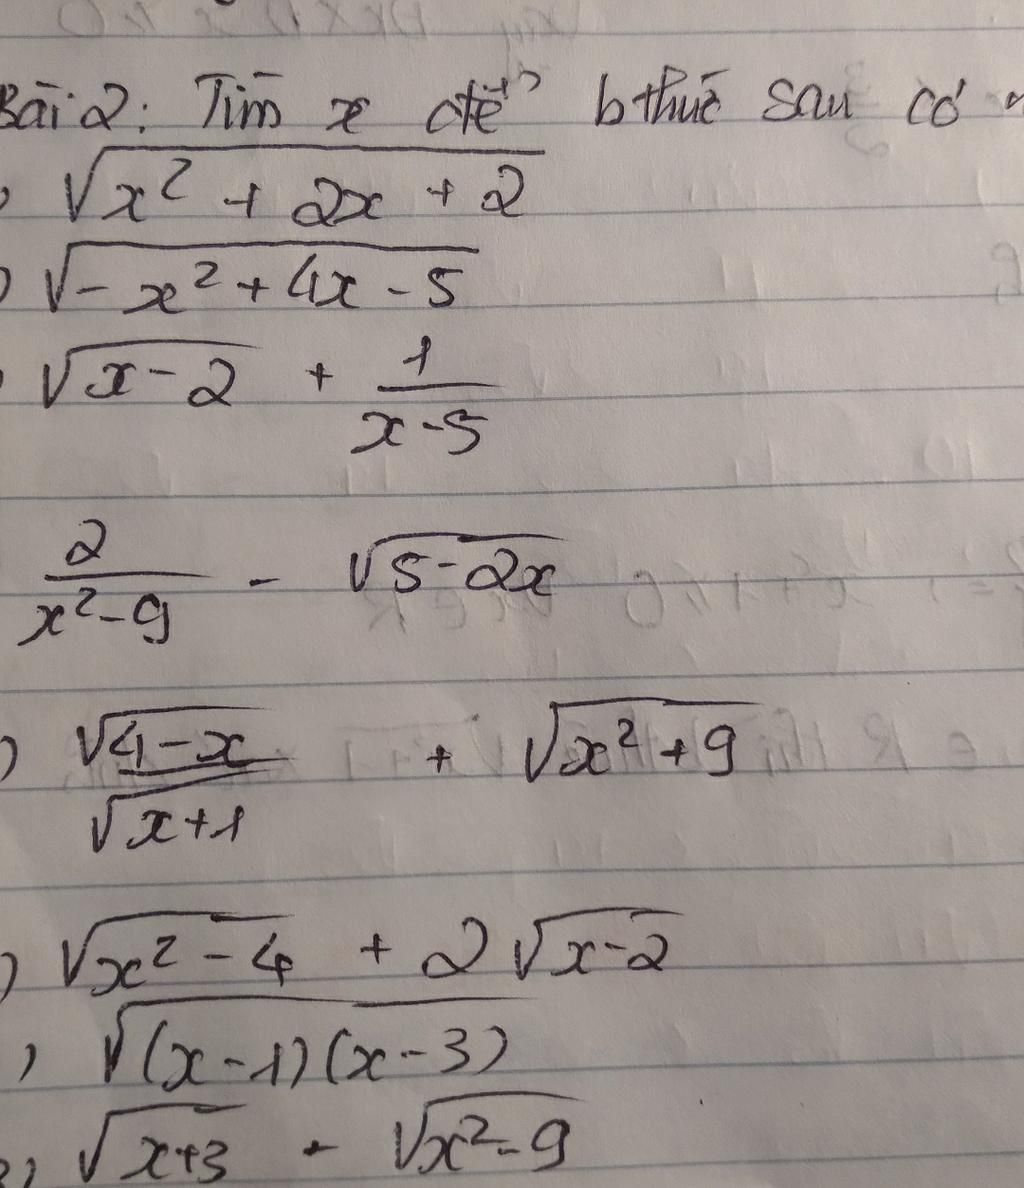 Bài 2: Tìm x để bthức sau có
√(x² + 2x + 2)
√(-x² + 4x - 5)
√(x - 2) + 1/(x - 5)
2/(x² - 9) - √(5 - 2x)
√(4 - x)/√(x + 1) + √(x² + 9)
√(x² - 4) + 2√(x - 2)
) √((x - 1)(x - 3))
√(x + 3) - √(x² - 9)